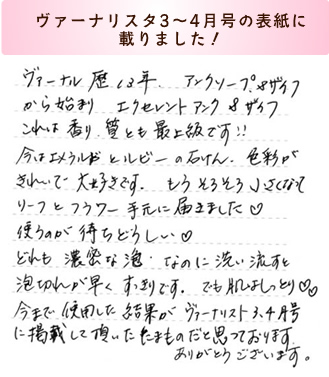 ヴァーナリスタ3～4月号の表紙に
載りました！
ヴァーナル歴13年、アンクソープ、&ザイフ
から始まり エクセレントアンク&ザイフ
これは香り、質とも最上級です!!
今はエメラルドとルビーの石けん、色彩が
きれいで大好きです。もうそろそろ小さくなって
リーフとフラワー手元に届きました♡
使うのが待ちどうしい♡
どれも濃密な泡、なのに洗い流すと
泡切れが早くすっきりです。でも肌はしっとり♡♡
今まで使用した結果がヴァーナリスト3、4月号
に掲載して頂いたたまものだと思っております。
ありがとうございます。